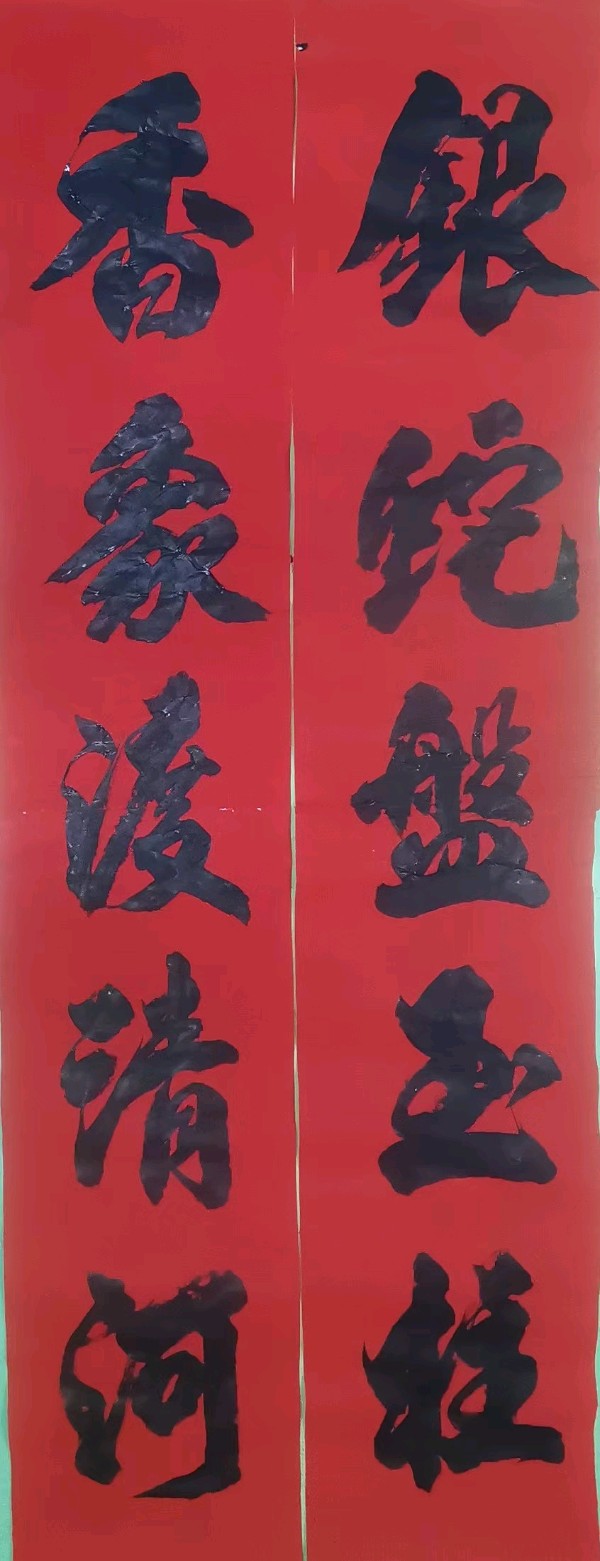 銀蛇盤玉柱
香象渡清河